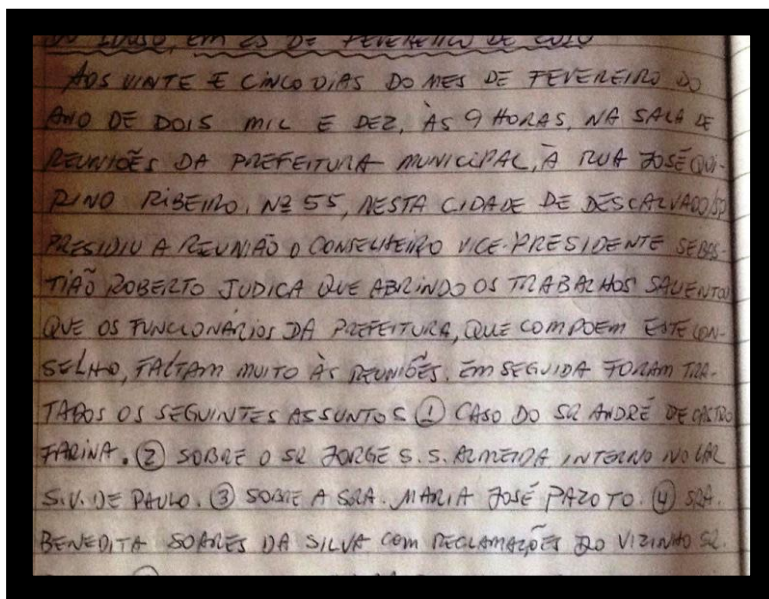 DO IDOSO, EM 25 DE FEVEREIRO DE 2010
AOS VINTE E CINCO DIAS DO MES DE FEVEREIRO DO
ANO DE DOIS MIL E DEZ, ÀS 9 HORAS, NA SALA DE
REUNIÕES DA PREFEITURA MUNICIPAL, À RUA JOSÉ QUI-
RINO RIBEIRO, Nº 55, NESTA CIDADE DE DESCALVADO/SP
PRESIDIU A REUNIÃO O CONSELHEIRO VICE-PRESIDENTE SEBAS-
TIÃO ROBERTO JUDICA QUE ABRINDO OS TRABALHOS SALIENTOU
QUE OS FUNCIONÁRIOS DA PREFEITURA, QUE COMPOEM ESTE CON-
SELHO, FALTAM MUITO ÀS REUNIÕES. EM SEGUIDA FORAM TRA-
TADOS OS SEGUINTES ASSUNTOS ① CASO DO SR ANDRÉ DE CASTRO
FARINA. ② SOBRE O SR JORGE S. S. ALMEIDA INTERNO NO LAR
S.V. DE PAULO. ③ SOBRE A SRA. MARIA JOSÉ PAZOTO. ④ SRA.
BENEDITA SOARES DA SILVA COM RECLAMAÇÕES DO VIZINHO SR.